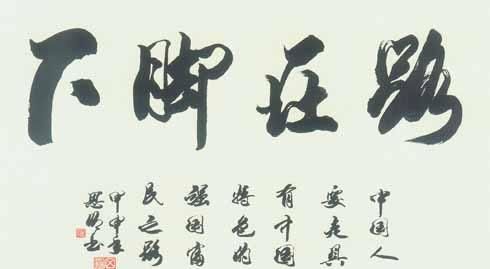 路在脚下
中国人
要走具
有中国
特色的
强国富
民之路
甲申年
书